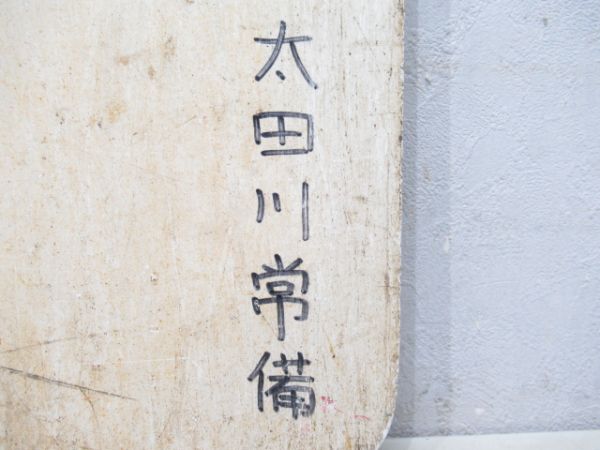 太田川常備